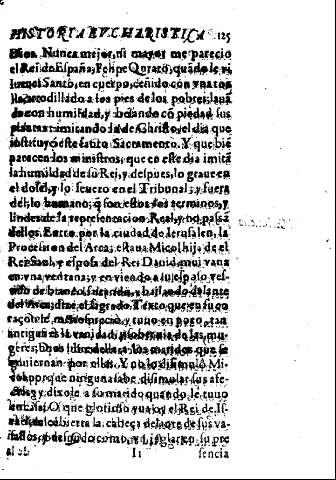 HISTORIA EVCHARISTICA 125
Dios. Nunca mejor, ni mayor me parecio
el Rei de España, Felipe Quarto, quãdo le vi
Iueues Santo, en cuerpo, ceñido con vna toalla
arrodillado a los pies de los pobres, laua
do con humildad, y besando cõ piedad sus
plantas: imitando la de Christo, el dia que
instituyò este santo Sacramento. Y que biẽ
parecen los ministros, que en este dia imitã
la humildad de su Rei, y despues, lo graue en
el dosel, y lo seuero en el Tribunal; y fuera
del, lo humano; q̃ son estos los terminos, y
lindes de la representacion Real, y no passã
dellos. Entrò por la ciudad de Ierusalen, la
Procession del Arca; estaua Micol hija de el
Rei Saul, y esposa del Rei Dauid, mui vana
en vna ventana; y en viendo a su esposo vestido
de blanco bailando delante
del Arca; dize el sagrado Texto que en su co
raçon le menospreciò, y tuuo en poco, tan
antigua es la vanidad, y soberuia de las mugeres;
Dios libre los maridos que se
por ellas. Y no lo dissimulò Micol,
porque ninguna sabe dissimular sus afectos;
y dixole a su marido quando le tuuo
O que glorioso yua oy el Rei de Is
descubierta la cabeça delante de sus vasallos,
y desnudo como vn juglar en su pre
Ii sencia